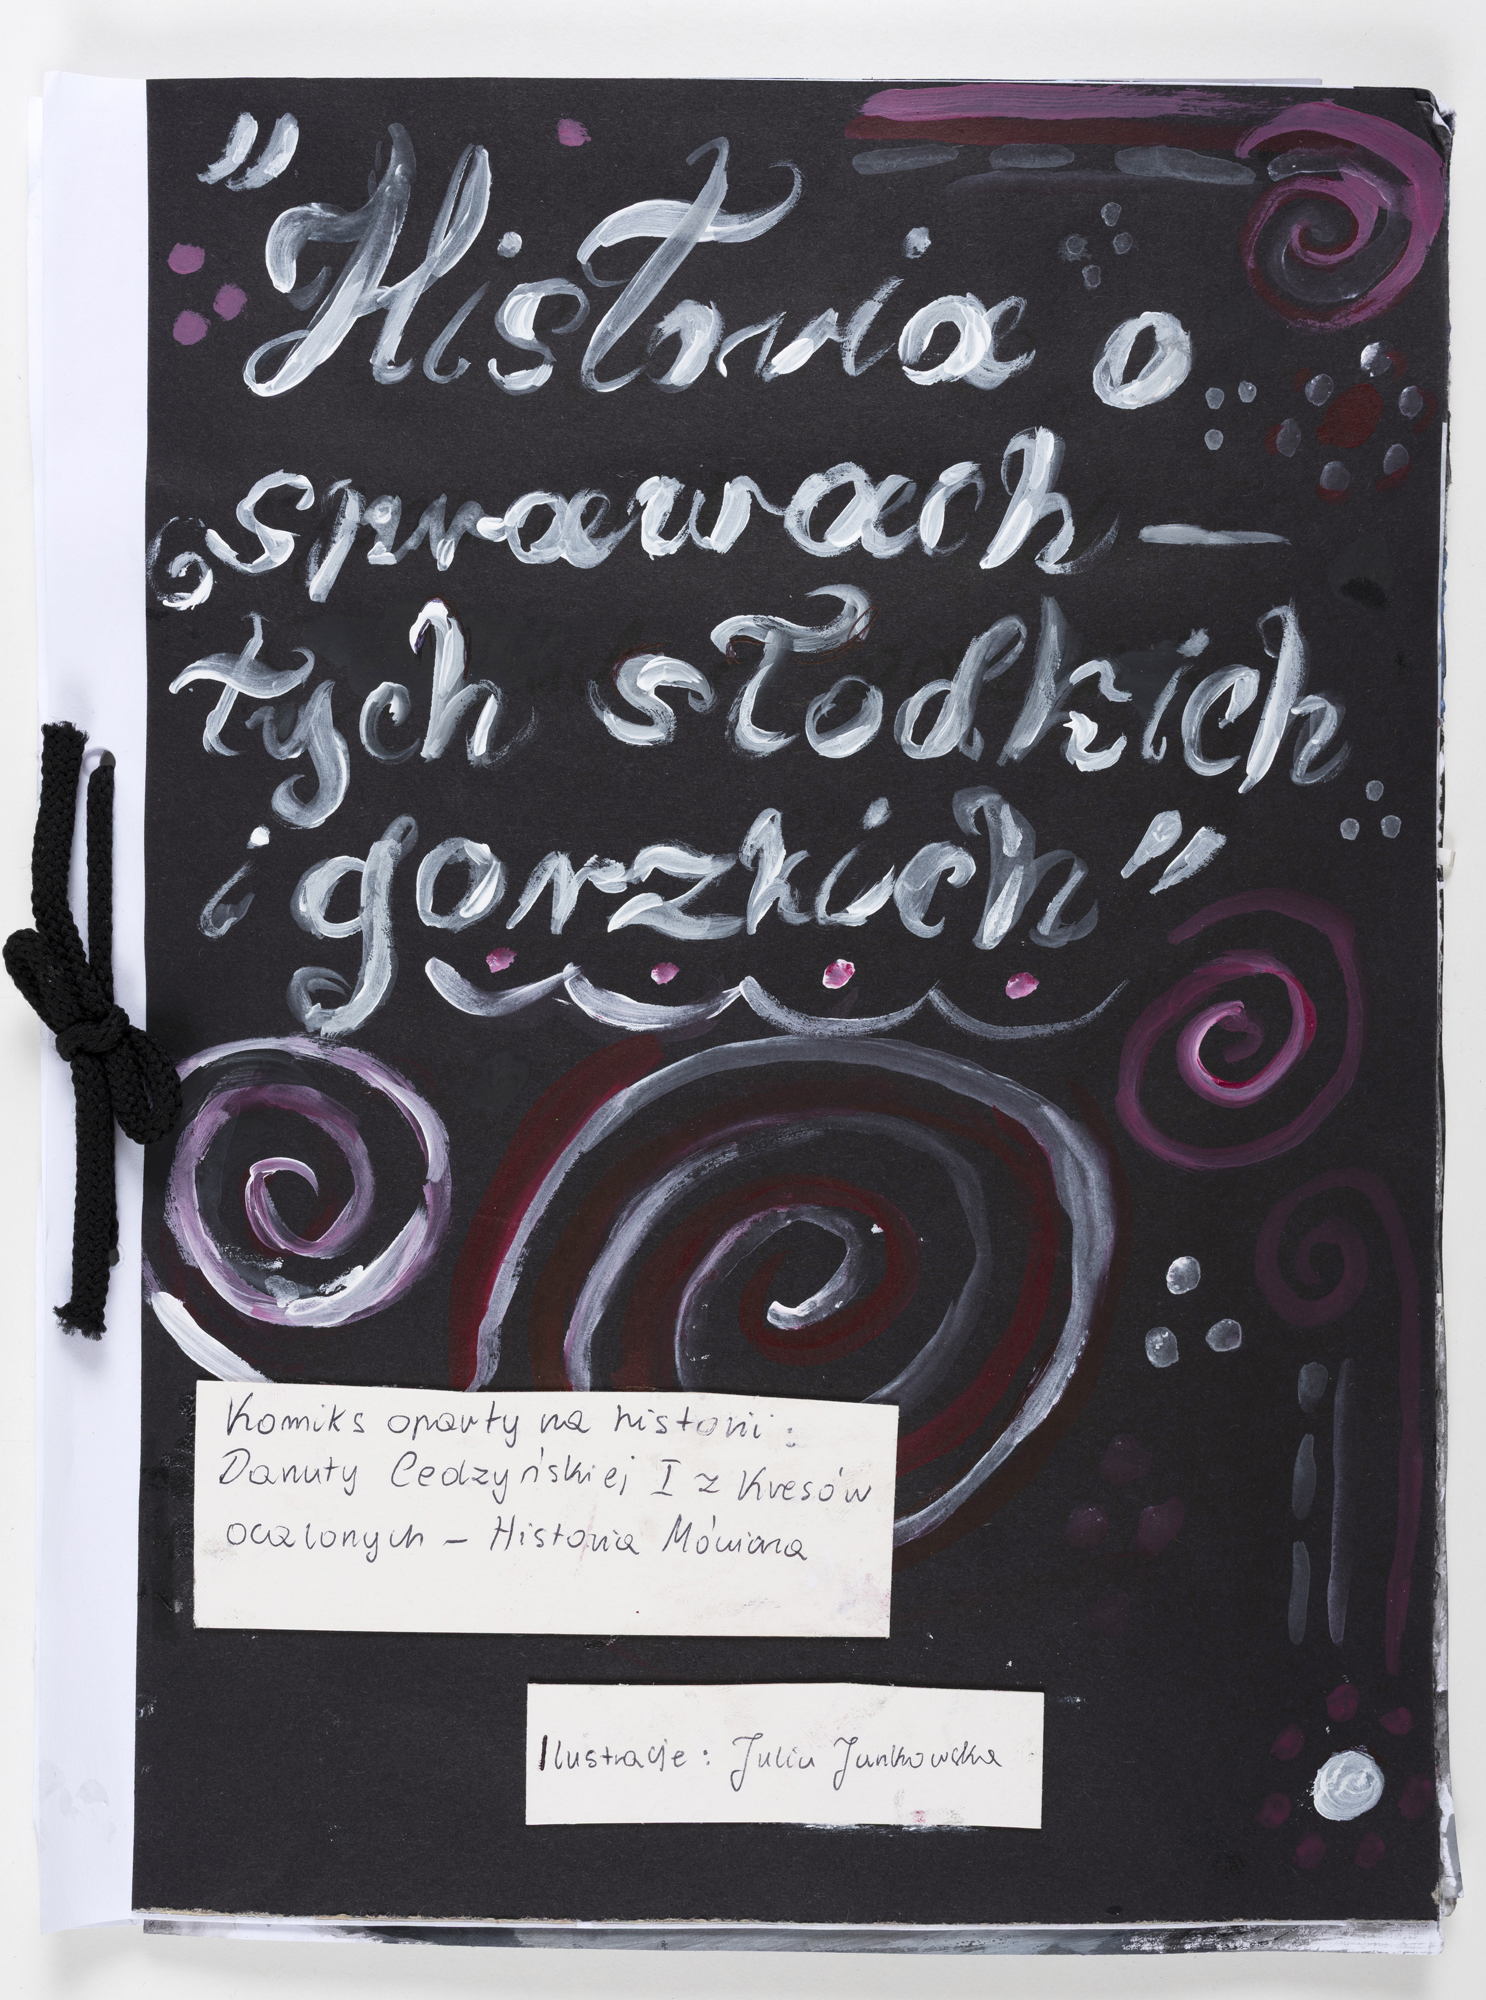 "Historia o
sprawach —
tych słodkich
i gorzkich"
Komiks oparty na historii:
Danuty Cedzyńskiej I z Kresów
ocalonych – Historia Mówiona
Ilustracje: Julia Junkowska